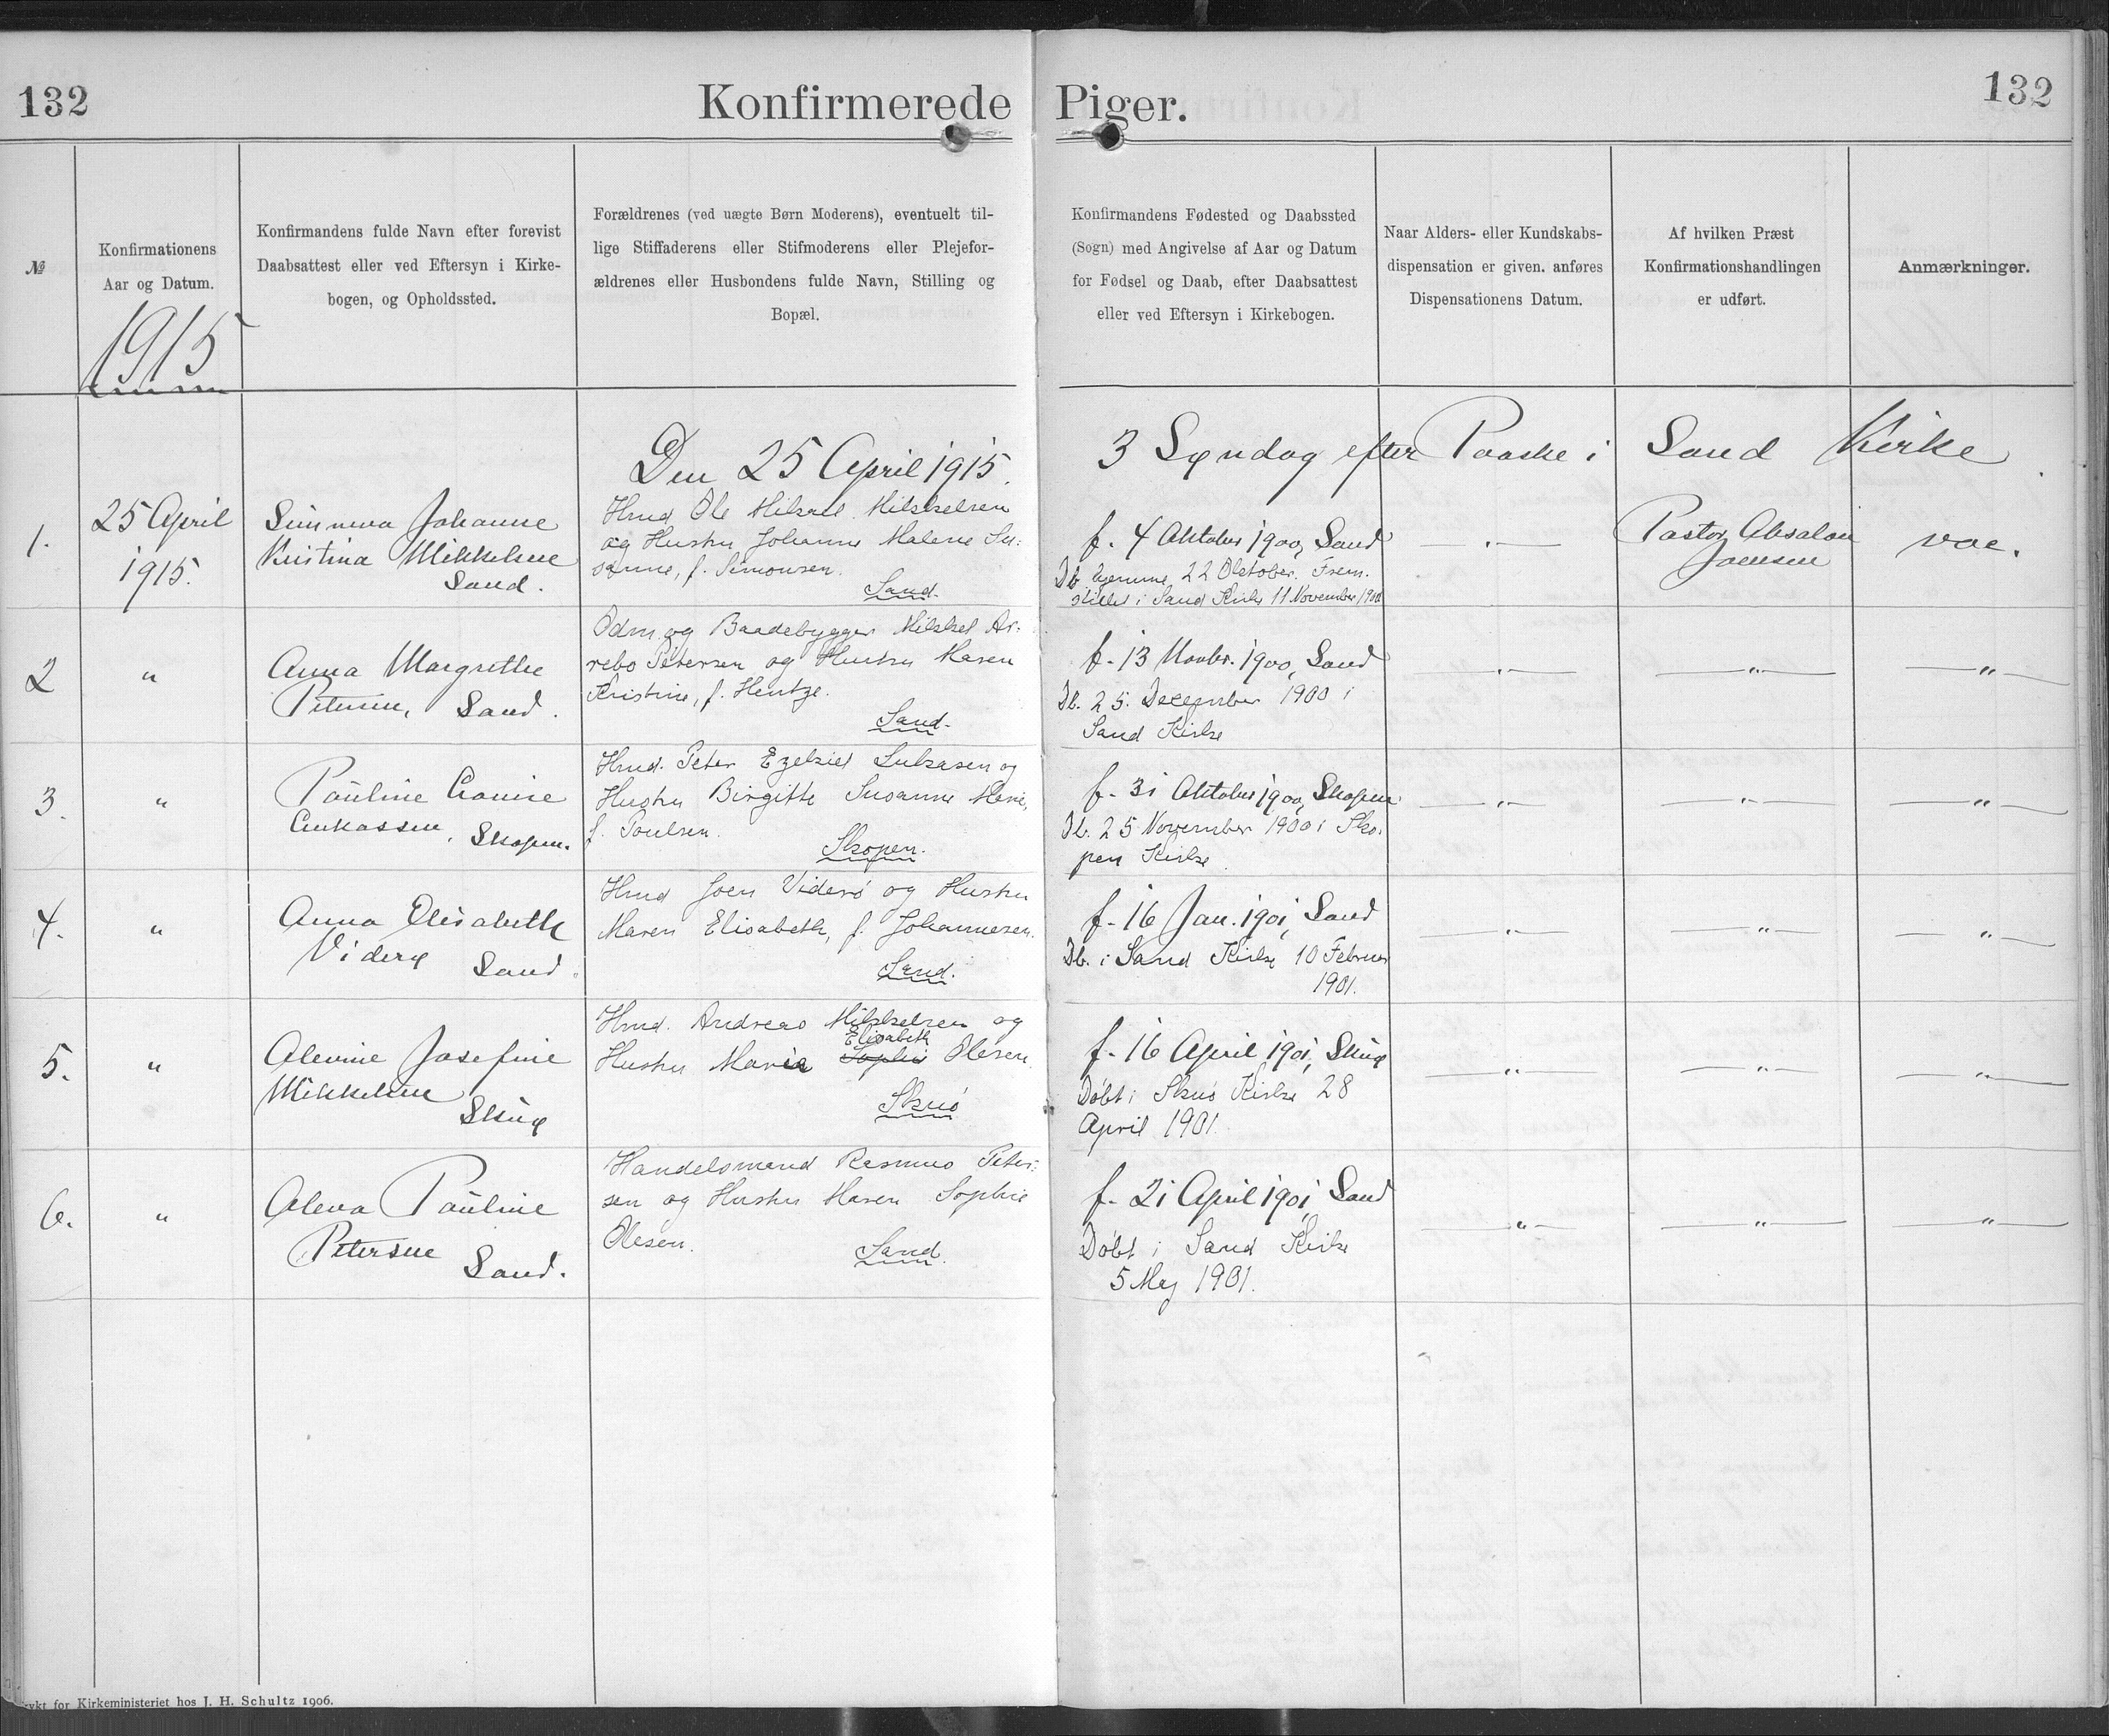 132
Konfirmerede Piger.
132
№
Konfirmationens
Aar og Datum.
1915
Konfirmandens fulde Navn efter forevist
Daabsattest eller ved Eftersyn i Kirke-
bogen, og Opholdssted.
Forældrenes (ved uægte Børn Moderens), eventuelt til-
lige Stiffaderens eller Stifmoderens eller Plejefor-
ældrenes eller Husbondens fulde Navn, Stilling og
Bopæl.
Konfirmandens Fødested og Daabssted
(Sogn) med Angivelse af Aar og Datum
for Fødsel og Daab, efter Daabsattest
eller ved Eftersyn i Kirkebogen.
Naar Alders- eller Kundskabs-
dispensation er given. anføres
Dispensationens Datum.
Af hvilken Præst
Konfirmationshandlingen
er udført.
Anmærkninger.
Den 25 April 1915. 3 Søndag efter Paaske i Sand Kirke
1.
25 April
1915.
Sunneva Johanne
Kristina Mikkelsen
Sand.
Hmd Ole Mikael Mikkelsen
og Hustru Johanne Malene Su:
sanne, f. Simonsen.
Sand.
f. 4 Oktober 1900, Sand
Db. hjemme 22 Oktober. Frem.
stillet i Sand Kirke 11 November 1900
Pastor Absalon
Joensen
vac.
2
"
Anna Margrethe
Petersen, Sand.
Odm. og Baadebygger Mikkel Ar:
rebo Petersen og Hustru Maren
Kristine, f. Hentze.
Sand.
f. 13 Novbr. 1900, Sand
Db. 25. December 1900 i
Sand Kirke
" " "
3.
"
Pauline Louise
Lukassen, Skopen.
Hmd. Peter Ezekiel Lukasen og
Hustru Birgitte Susanne Marie,
f. Poulsen.
Skopen.
f. 31 Oktober 1900, Skopen
Db. 25 November 1900 i Sko.
pen Kirke.
" " "
4.
"
Anna Elisabeth
Viderø Sand.
Hmd Joen Viderö og Hustru
Maren Elisabeth, f. Johannesen.
Sand.
f. 16 Jan. 1901, Sand
Db. i Sand Kirke 10 Februar
1901.
" " "
5.
"
Alevine Josefine
Mikkelsen
Skuø
Hmd. Andreas Mikkelsen og
Elisabeth
Hustru Maria Sophie Olesen
Skuö
f. 16 April 1901, Skuø
Döbt i Skuö Kirke 28
April 1901.
" " "
6.
"
Aleva Pauline
Petersen Sand.
Handelsmand Rasmus Peter:
sen og Hustru Maren Sophie
Olesen.
Sand.
f. 21 April 1901, Sand
Döbt i Sand Kirke
5 Maj 1901.
" " "
rykt for Kirkeministeriet hos J. H. Schultz 1906.